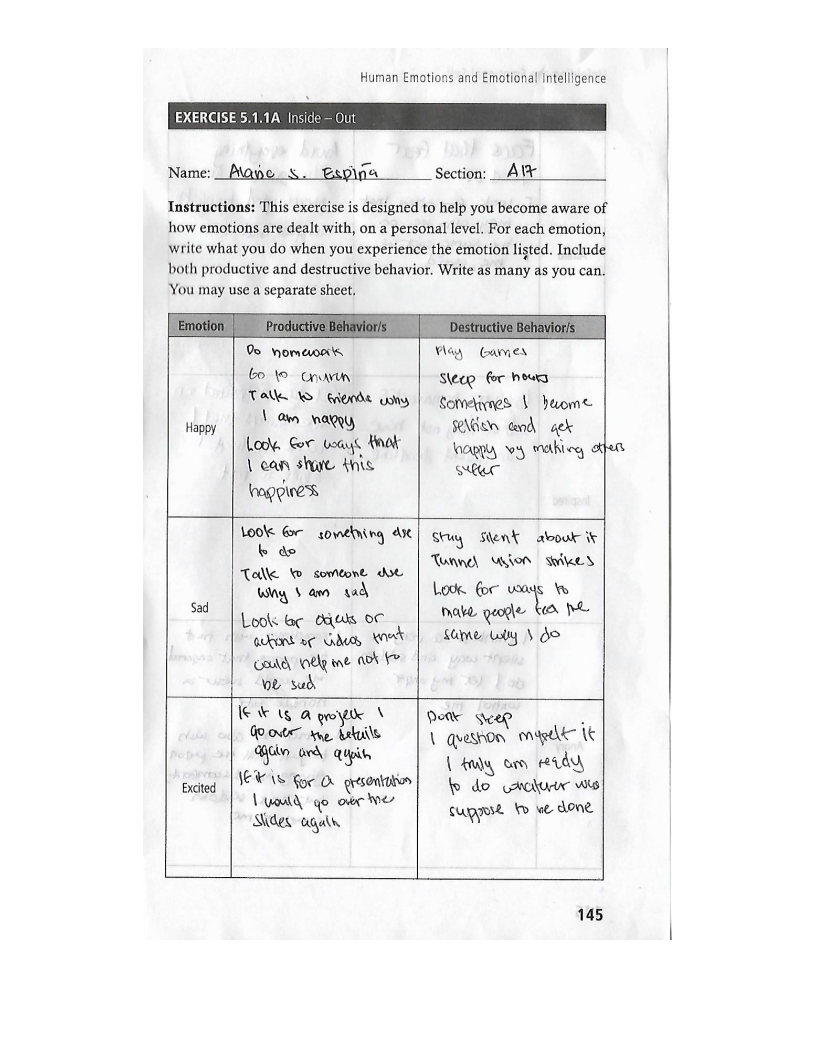 Human Emotions and Emotional Intelligence
EXERCISE 5.1.1A Inside – Out
Name: S. Espiña Section: A17
Instructions: This exercise is designed to help you become aware of
how emotions are dealt with, on a personal level. For each emotion,
write what you do when you experience the emotion listed. Include
both productive and destructive behavior. Write as many as you can.
You may use a separate sheet.
Emotion Productive Behavior/s Destructive Behavior/s
Happy
Do homework
Go to church
Talk to friends why
I am happy
Look for ways that
I can share this
happiness
Play Games
Sleep for hours
Sometimes I become
selfish and get
happy by making others
suffer
Sad
Look for something else
to do
Talk to someone else
why I am sad
Look for objects or
actions or videos that
could help me not to
be sad
Stay silent about it
Tunnel vision strikes
Look for ways to
make people feel the
same way I do
Excited
If it is a project I
go over the details
again and again
If it is for a presentation
I would go over the
slides again
Dont sleep
I question myself if
I truly am ready
to do whatever was
suppose to be done
145